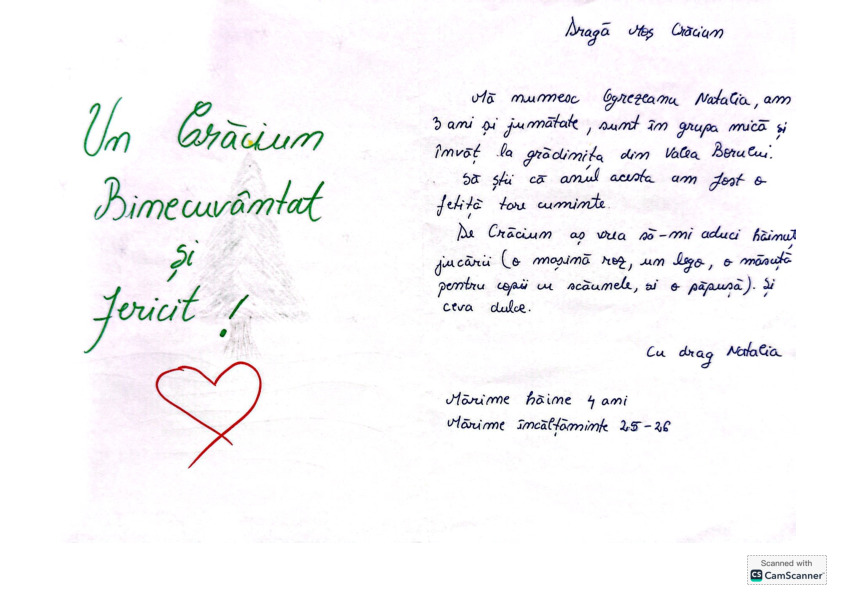 Un Crăciun
Binecuvântat
și
fericit!
Dragă Moș Crăciun
Mă numesc Ogrezeanu Natalia, am
3 ani și jumătate, sunt în grupa mică și
învăț la grădinița din Valea Borului.
Să știi că anul acesta am fost o
fetiță tare cuminte.
De Crăciun aș vrea să-mi aduci hăinuț
jucării (o mașină roz, un lego, o măsuță
pentru copii cu scăunele, si o păpușă). Și
ceva dulce.
Cu drag Natalia
Mărime haine 4 ani
Mărime încălțăminte 25-26
Scanned with
CS CamScanner